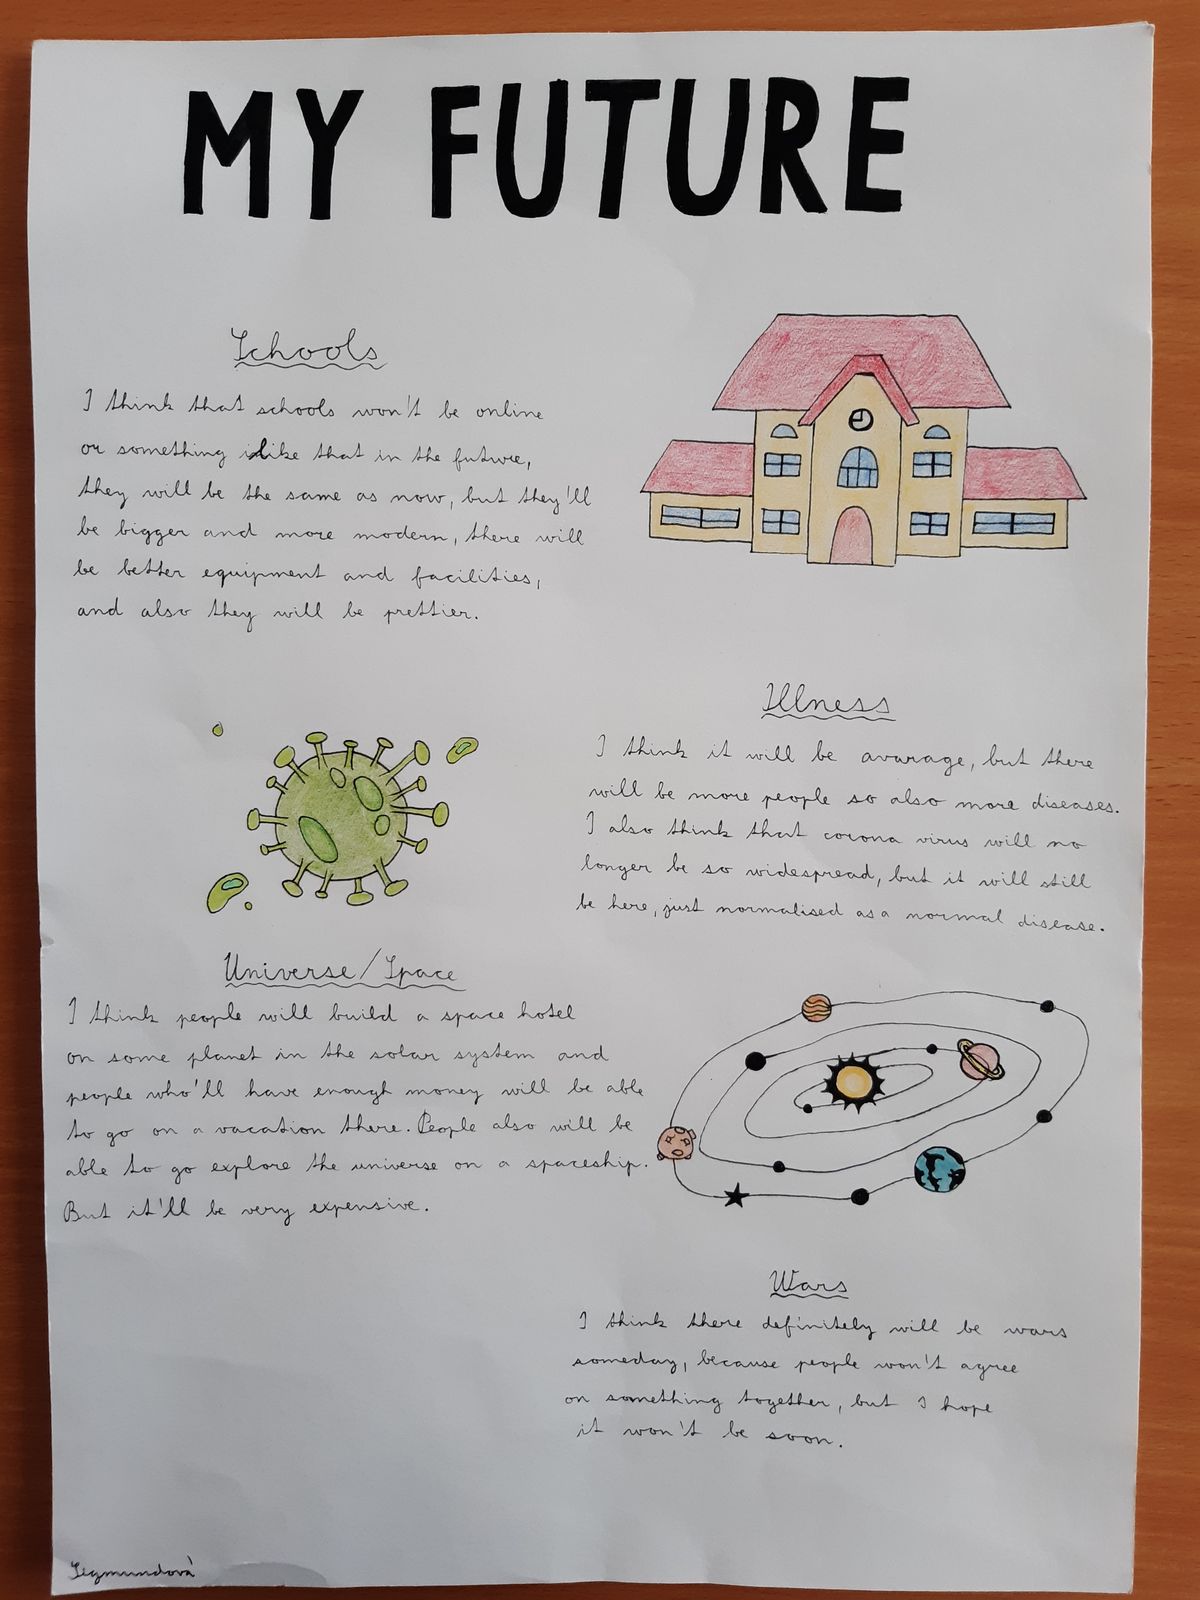 MY FUTURE
Schools
I think that schools won't be online
or something like that in the future,
they will be the same as now, but they'll
be bigger and more modern, there will
be better equipment and facilities,
and also they will be prettier.
Illness
I think it will be avarage, but there
will be more people so also more diseases.
I also think that corona virus will no
longer be so widespread, but it will still
be here, just normalised as a normal disease.
Universe/Space
I think people will build a space hotel
on some planet in the solar system and
people who'll have enough money will be able
to go on a vacation there. People also will be
able to go explore the universe on a spaceship.
But it'll be very expensive.
Wars
I think there definitely will be wars
someday, because people won't agree
on something together, but I hope
it won't be soon.
Zegmundová